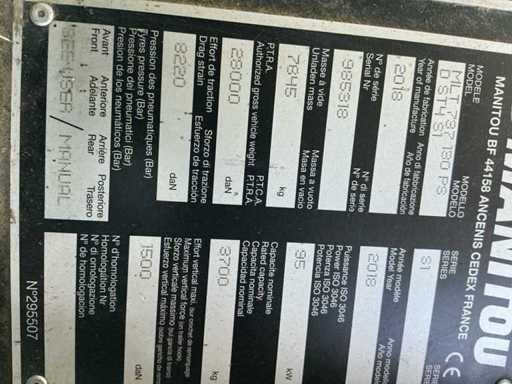 MANITOU
MANITOU BF 44158 ANCENIS CEDEX FRANCE
CE
MODELE MODELLO
MODEL MODELO
MLT 737 130 PS
D ST4 S1
SERIE SERIE
SERIES SERIE
S1
Année de fabrication Anno di fabbricazione
Year of manufacture Año de fabricación
2018
Année modèle Anno modello
Model Year Año modelo
2018
N° de série N° di serie
Serial Nr N° de serie
985318
Puissance ISO 3046
Power ISO 3046
Potenza ISO 3046
Potencia ISO 3046
95 kW
Masse à vide Massa a vuoto
Unladen mass Masa en vacio
7845 kg
Capacité nominale
Rated capacity
Capacita nominale
Capacidad nominal
3700
P.T.R.A. P.T.C.A.
Authorized gross vehicle weight P.T.R.A.
29000
Effort vertical maxi.
Maximum vertical force
Sforzo verticale massimo
Esfuerzo vertical máximo
1500
Effort de traction Sforzo di trazione
Drag strain Esfuerzo de tracción
8220 daN
N° d'homologation
Homologation Nr
N° di omologazione
N° de homologación
Pression des pneumatiques (Bar)
Tyres pressure (Bar)
Pressione dei pneumatici (Bar)
Presion de los neumáticos (Bar)
Avant Anteriore Arrière Posteriore
Front Adelante Rear Trasero
SEE USER/MANUAL
N°295507